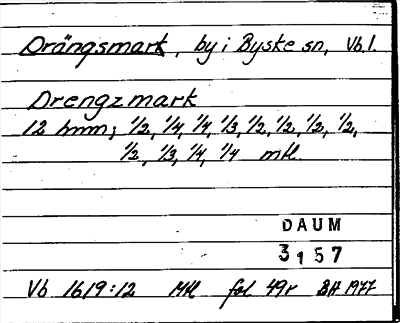 Drängsmark, by i Byske sn, Vb.l.
Drengzmark
12 hmm; 1/2, 1/4, 1/4, 1/3, 1/2, 1/2, 1/2, 1/2,
1/2, 1/3, 1/4, 1/4 mtl.
DAUM
3157
Vb 1619:12 Mtl fol 49r BH 1977